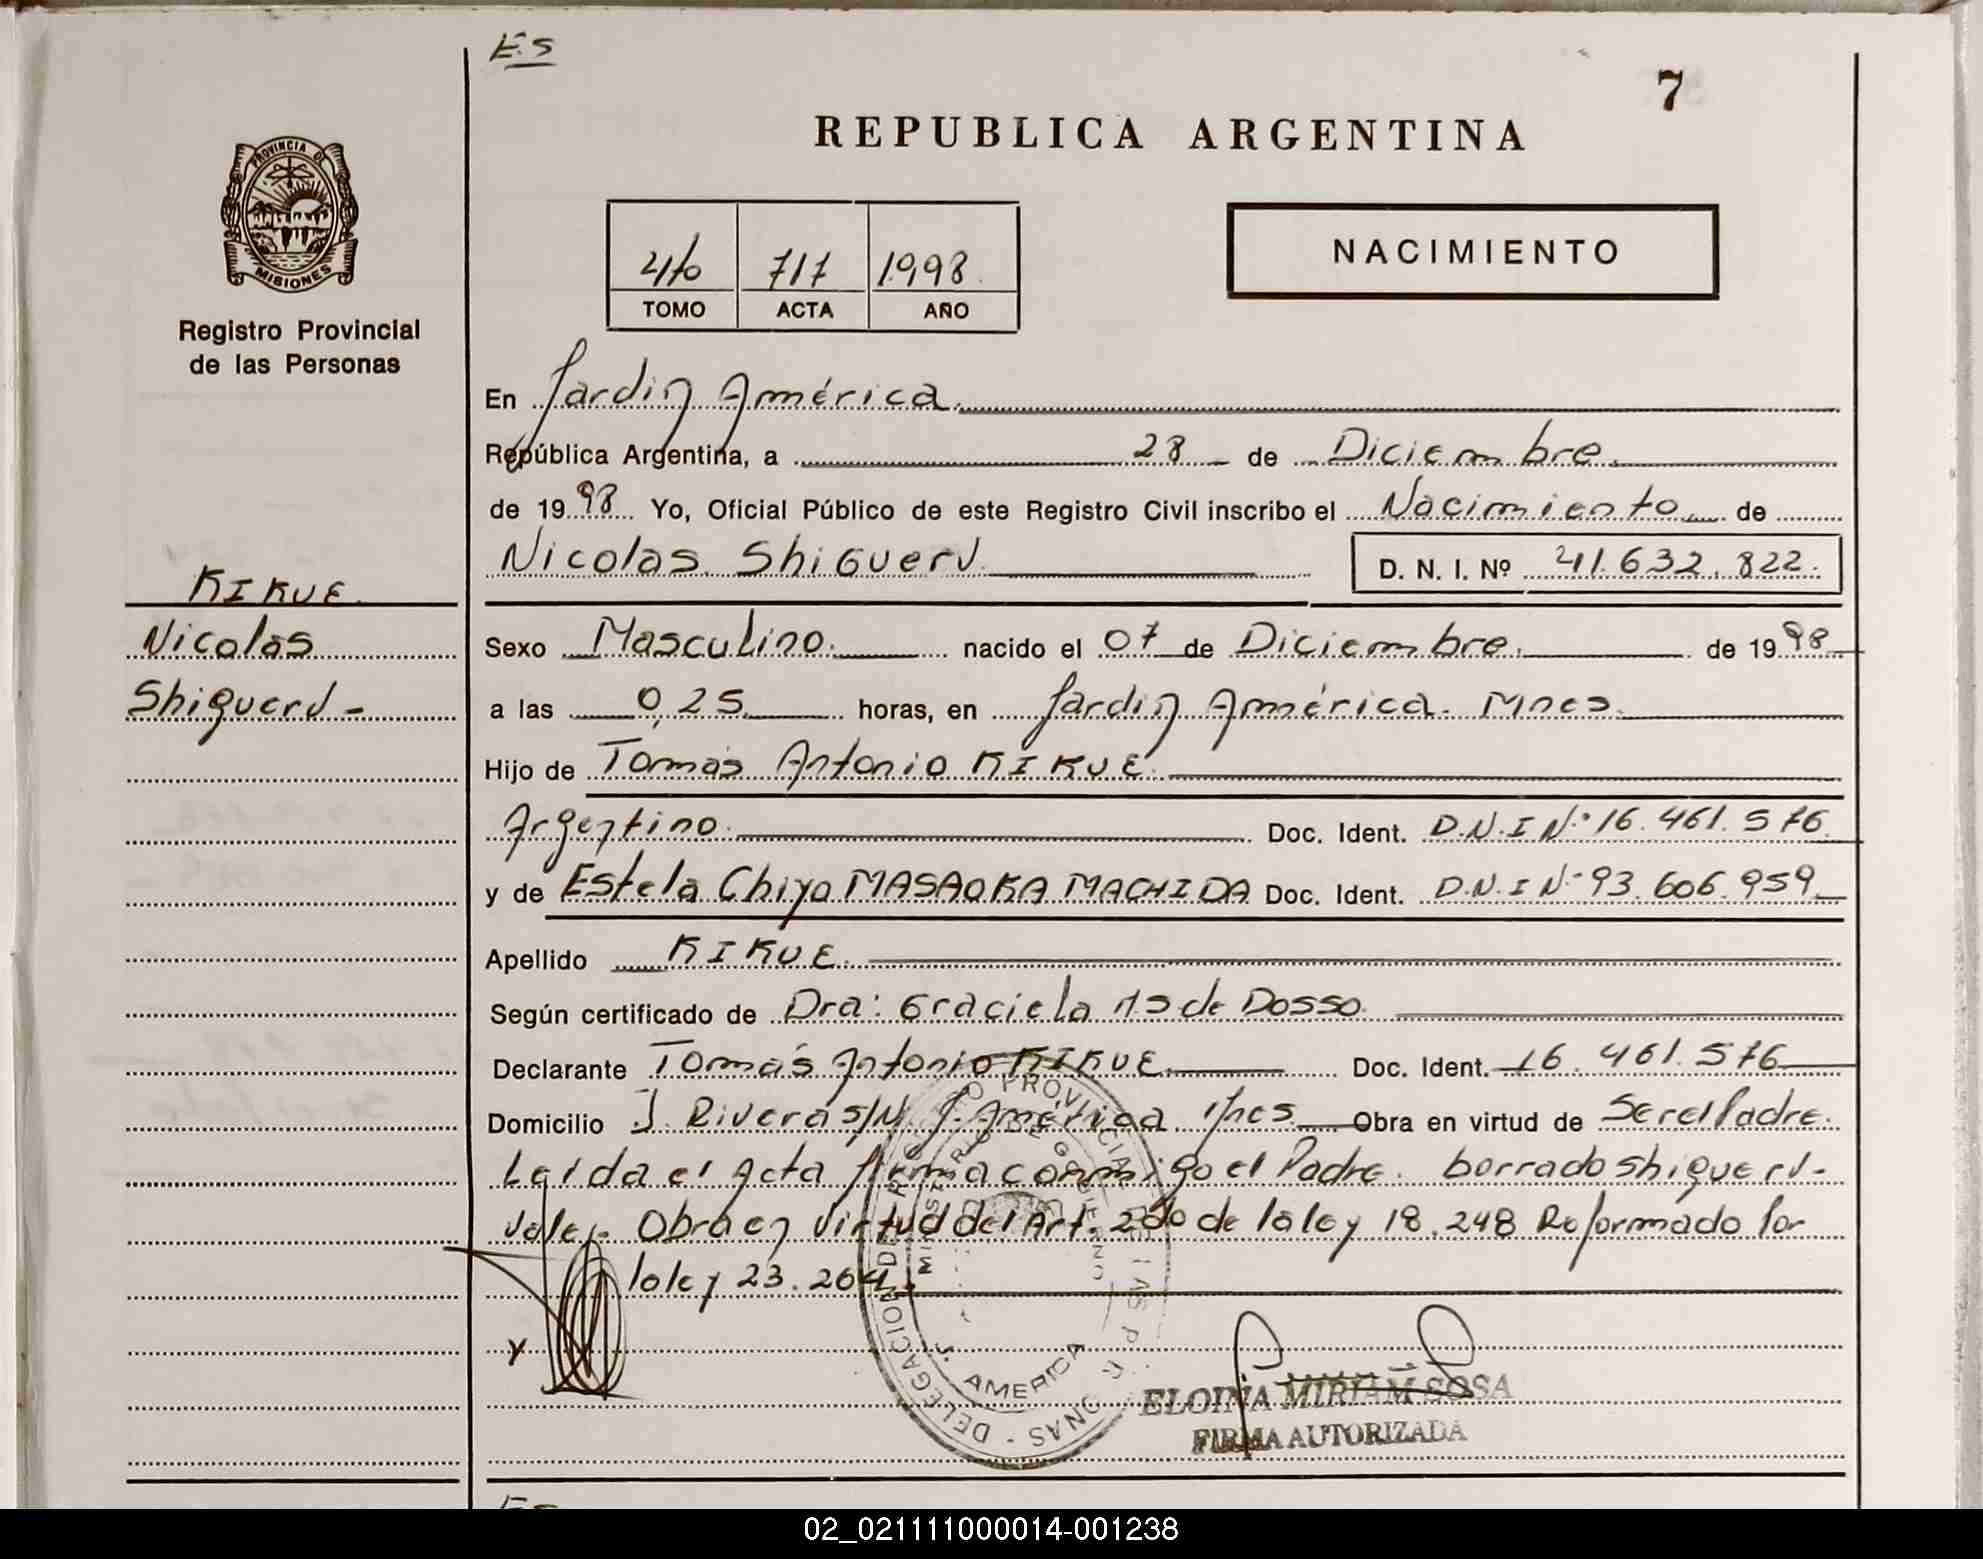 E.S
7
REPUBLICA ARGENTINA
PROVINCIA DE
MISIONES
Registro Provincial
de las Personas
4to 717 1998
TOMO ACTA AÑO
NACIMIENTO
En Jardin América.
República Argentina, a 28 de Diciembre.
de 1998 Yo, Oficial Público de este Registro Civil inscribo el Nacimiento de
Nicolas Shigueru. D. N. I. Nº 41.632.822.
KIKUE.
Nicolas
Shigueru -
Sexo Masculino. nacido el 07 de Diciembre. de 1998
a las 0,25 horas, en Jardin América. Mnes.
Hijo de Tomás Antonio KIKUE.
Argentino. Doc. Ident. D.N.I Nº 16.461.576.
y de Estela Chiyo MASAOKA MACHIDA Doc. Ident. D.N.I Nº 93.606.959
Apellido KIKUE.
Según certificado de Dra: Graciela de Dosso.
Declarante Tomás Antonio KIKUE Doc. Ident. 16.461.576
Domicilio J. Rivera S/N J. América Mnes. Obra en virtud de Ser el Padre.
Leída el Acta firma conmigo el Padre. borrado Shigueru -
Vale. Obra en virtud del Art. 2do de la ley 18.248 Reformado por
la ley 23.264.
DELEGACION REGISTRO PROVINCIAL DE LAS PERSONAS
MINISTERIO DE GOBIERNO
J. AMERICA
ELOINA MIRIAM SOSA
FIRMA AUTORIZADA
02_021111000014-001238